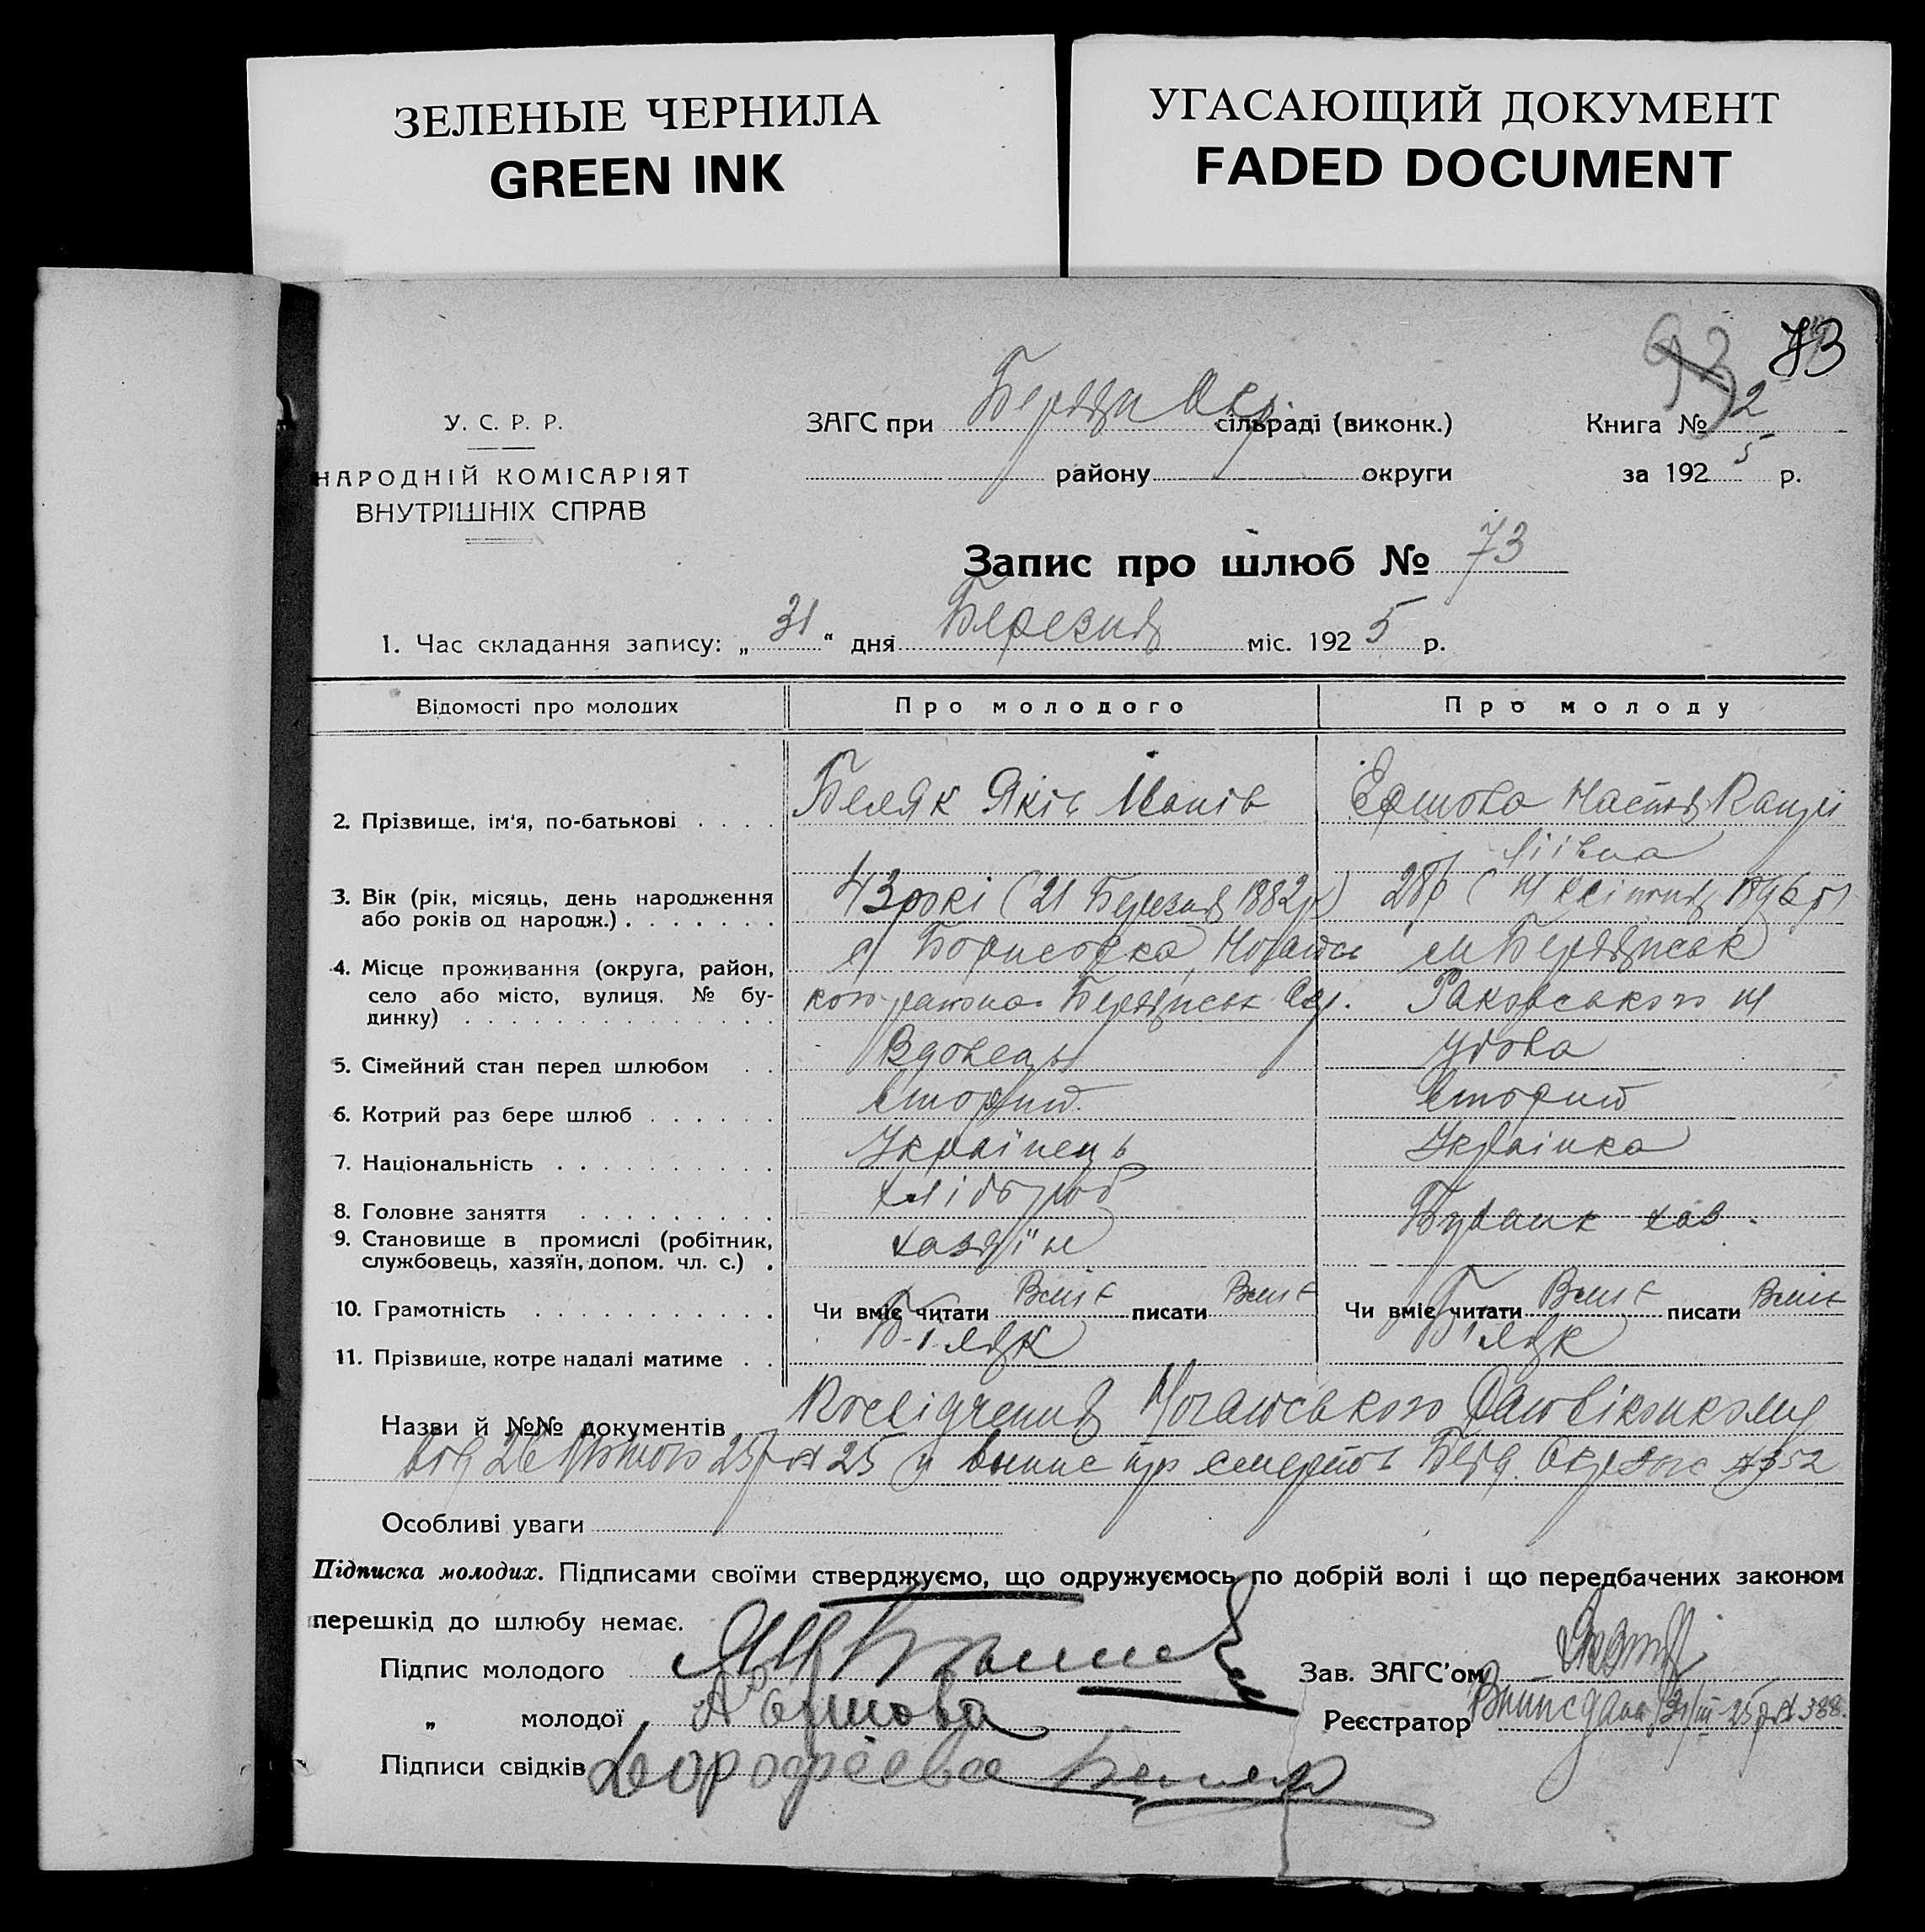 ЗЕЛЕНЫЕ ЧЕРНИЛА
GREEN INK
УГАСАЮЩИЙ ДОКУМЕНТ
FADED DOCUMENT
93 73
У. С. Р. Р.
НАРОДНІЙ КОМІСАРІЯТ
ВНУТРІШНІХ СПРАВ
ЗАГС при Бердян Окр. сільраді (виконк.)
району округи
Книга № 2
за 1925 р.
Запис про шлюб № 73
1. Час складання запису: „31“ дня Березня міс. 1925 р.
Відомості про молодих Про молодого Про молоду
2. Прізвище, ім'я, по-батькові . . . . Беляк Яків Іванів Ершова Настя
3. Вік (рік, місяць, день народження або років од народж.) . . . . . . . 43 рокі (21 Березня 1882р) 28р ( квітня 1896р)
4. Місце проживання (округа, район, село або місто, вулиця, № будинку) . . . . с. Борисовка, Ногайського района Бердянськ Окр. м Бердянськ Раковського
5. Сімейний стан перед шлюбом . . Вдовець Удова
6. Котрий раз бере шлюб . . . . . . вторий вторий
7. Національність . . . . . . . . . . Українець Українка
8. Головне заняття . . . . . . . . . хлібороб
9. Становище в промислі (робітник, службовець, хазяїн, допом. чл. с.) . хазяїн
10. Грамотність . . . . . . . . . . . Чи вміє читати Вміє писати Вміє Чи вміє читати Вміє писати Вміє
11. Прізвище, котре надалі матиме . . Біляк Біляк
Назви й №№ документів Посвідчення Ногайського Райвіконкому
від 26 Лютого 25р № 25 й випис про смерть Берд. Окр №352
Особливі уваги
Підписка молодих. Підписами своїми стверджуємо, що одружуємось по добрій волі і що передбачених законом
перешкід до шлюбу немає.
Підпис молодого
Зав. ЗАГС'ом
„ молодої А Єршова
Реєстратор Випис дана 31/III-25р № 388.
Підписи свідків Дорофеева